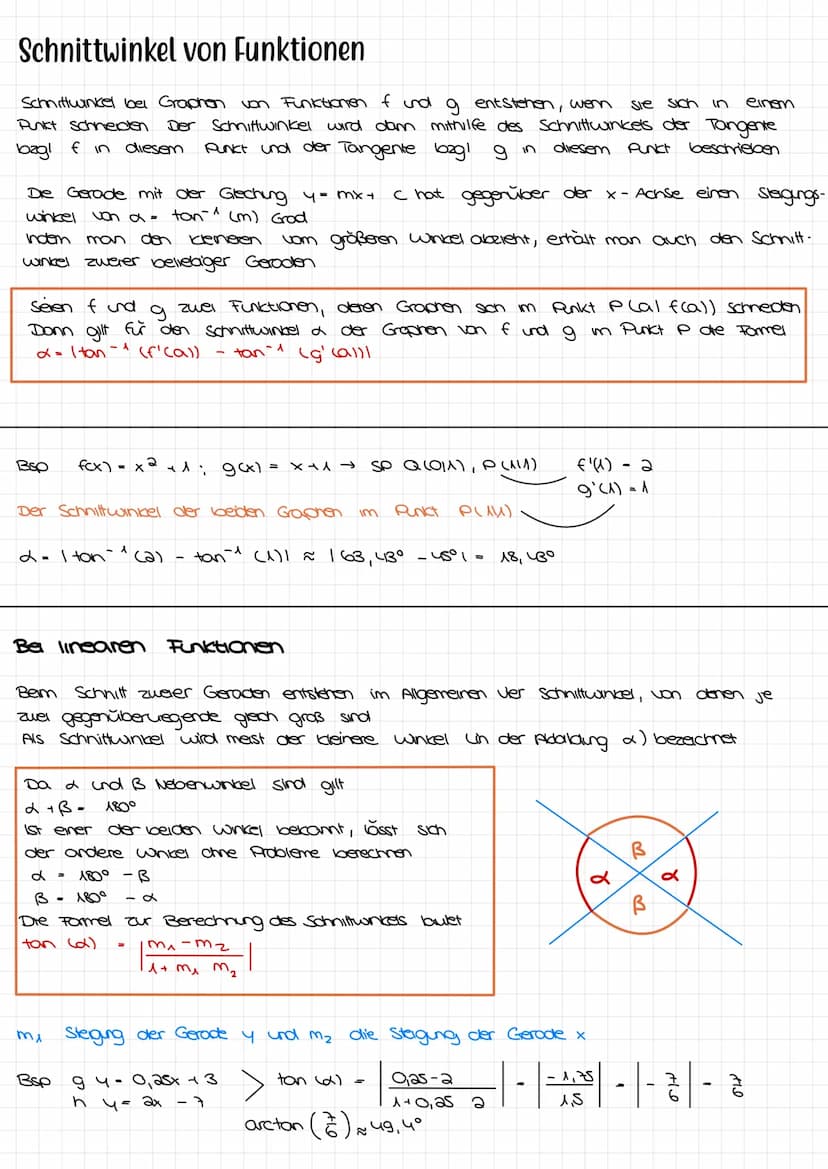 Schnittwinkel von Funktionen
Schnittwinkel bei Graphen von Funktionen f und g entstehen, wenn sie sich in einem
Punkt schneiden Der Schnittwinkel wird dann mithilfe des Schnittwinkels der Tangente
bzgl f in diesem Punkt und der Tangente bzgl g in diesem Punkt beschrieben
Die Gerade mit der Gleichung y = mx + c hat gegenüber der x-Achse einen Steigungs-
winkel von α = tan⁻¹ (m) Grad
Indem man den kleineren vom größeren Winkel abzieht, erhält man auch den Schnitt-
winkel zweier beliebiger Geraden
Seien f und g zwei Funktionen, deren Graphen sich im Punkt P(a| f(a)) schneiden
Dann gilt für den Schnittwinkel α der Graphen von f und g im Punkt P die Formel
α = |tan⁻¹ (f'(a)) - tan⁻¹ (g'(a))|
Bsp f(x) = x² + 1; g(x) = x+1 → SP Q(0|1), P(1|1) f'(1) = 2
g'(1) = 1
Der Schnittwinkel der beiden Graphen im Punkt P(1|1)
α = |tan⁻¹ (2) - tan⁻¹ (1)| ≈ |63,43° - 45°| = 18,43°
Bei linearen Funktionen
Beim Schnitt zweier Geraden entstehen im Allgemeinen vier Schnittwinkel, von denen je
zwei gegenüberliegende gleich groß sind
Als Schnittwinkel wird meist der kleinere Winkel (in der Abbildung α) bezeichnet
Da α und β Nebenwinkel sind gilt
α + β = 180°
Ist einer der beiden Winkel bekannt, lässt sich
der andere Winkel ohne Probleme berechnen
α = 180° - β
β = 180° - α
Die Formel zur Berechnung des Schnittwinkels lautet
tan (α) = |m₁ - m₂ / 1 + m₁ m₂|
β
α α
β
m₁ Steigung der Gerade y und m₂ die Steigung der Gerade x
Bsp g y = 0,25x + 3 > tan (α) = |0,25-2 / 1+0,25 2| = |-1,75 / 1,5| = |-7/6| = 7/6
h y = 2x - 7
arctan (7/6) ≈ 49,4°